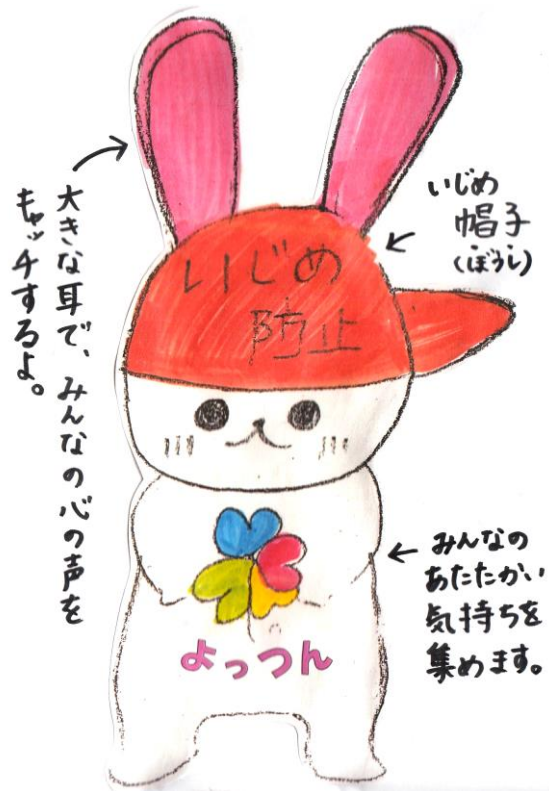 大きな耳で、みんなの心の声を
キャッチするよ。
いじめ
帽子
(ぼうし)
いじめ
防止
みんなの
あたたかい
気持ちを
集めます。
よっつん